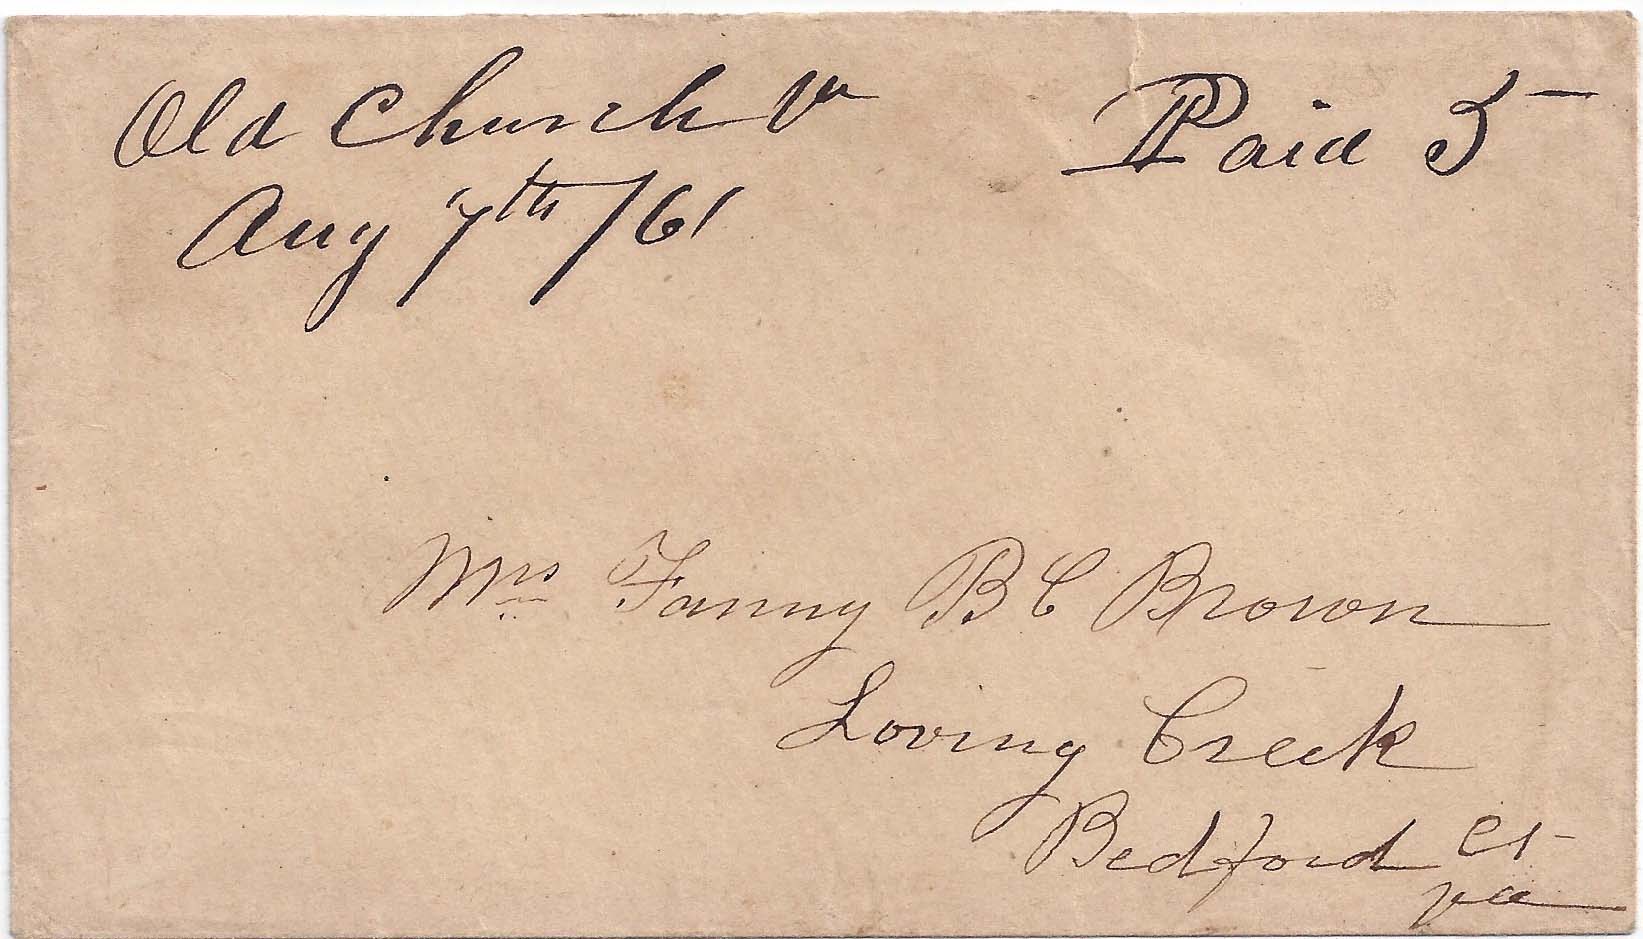 Old Church Va
Paid 5
Aug 7th/61
Mrs Fanny B C Brown
Loving Creek
Bedford Ct
Va